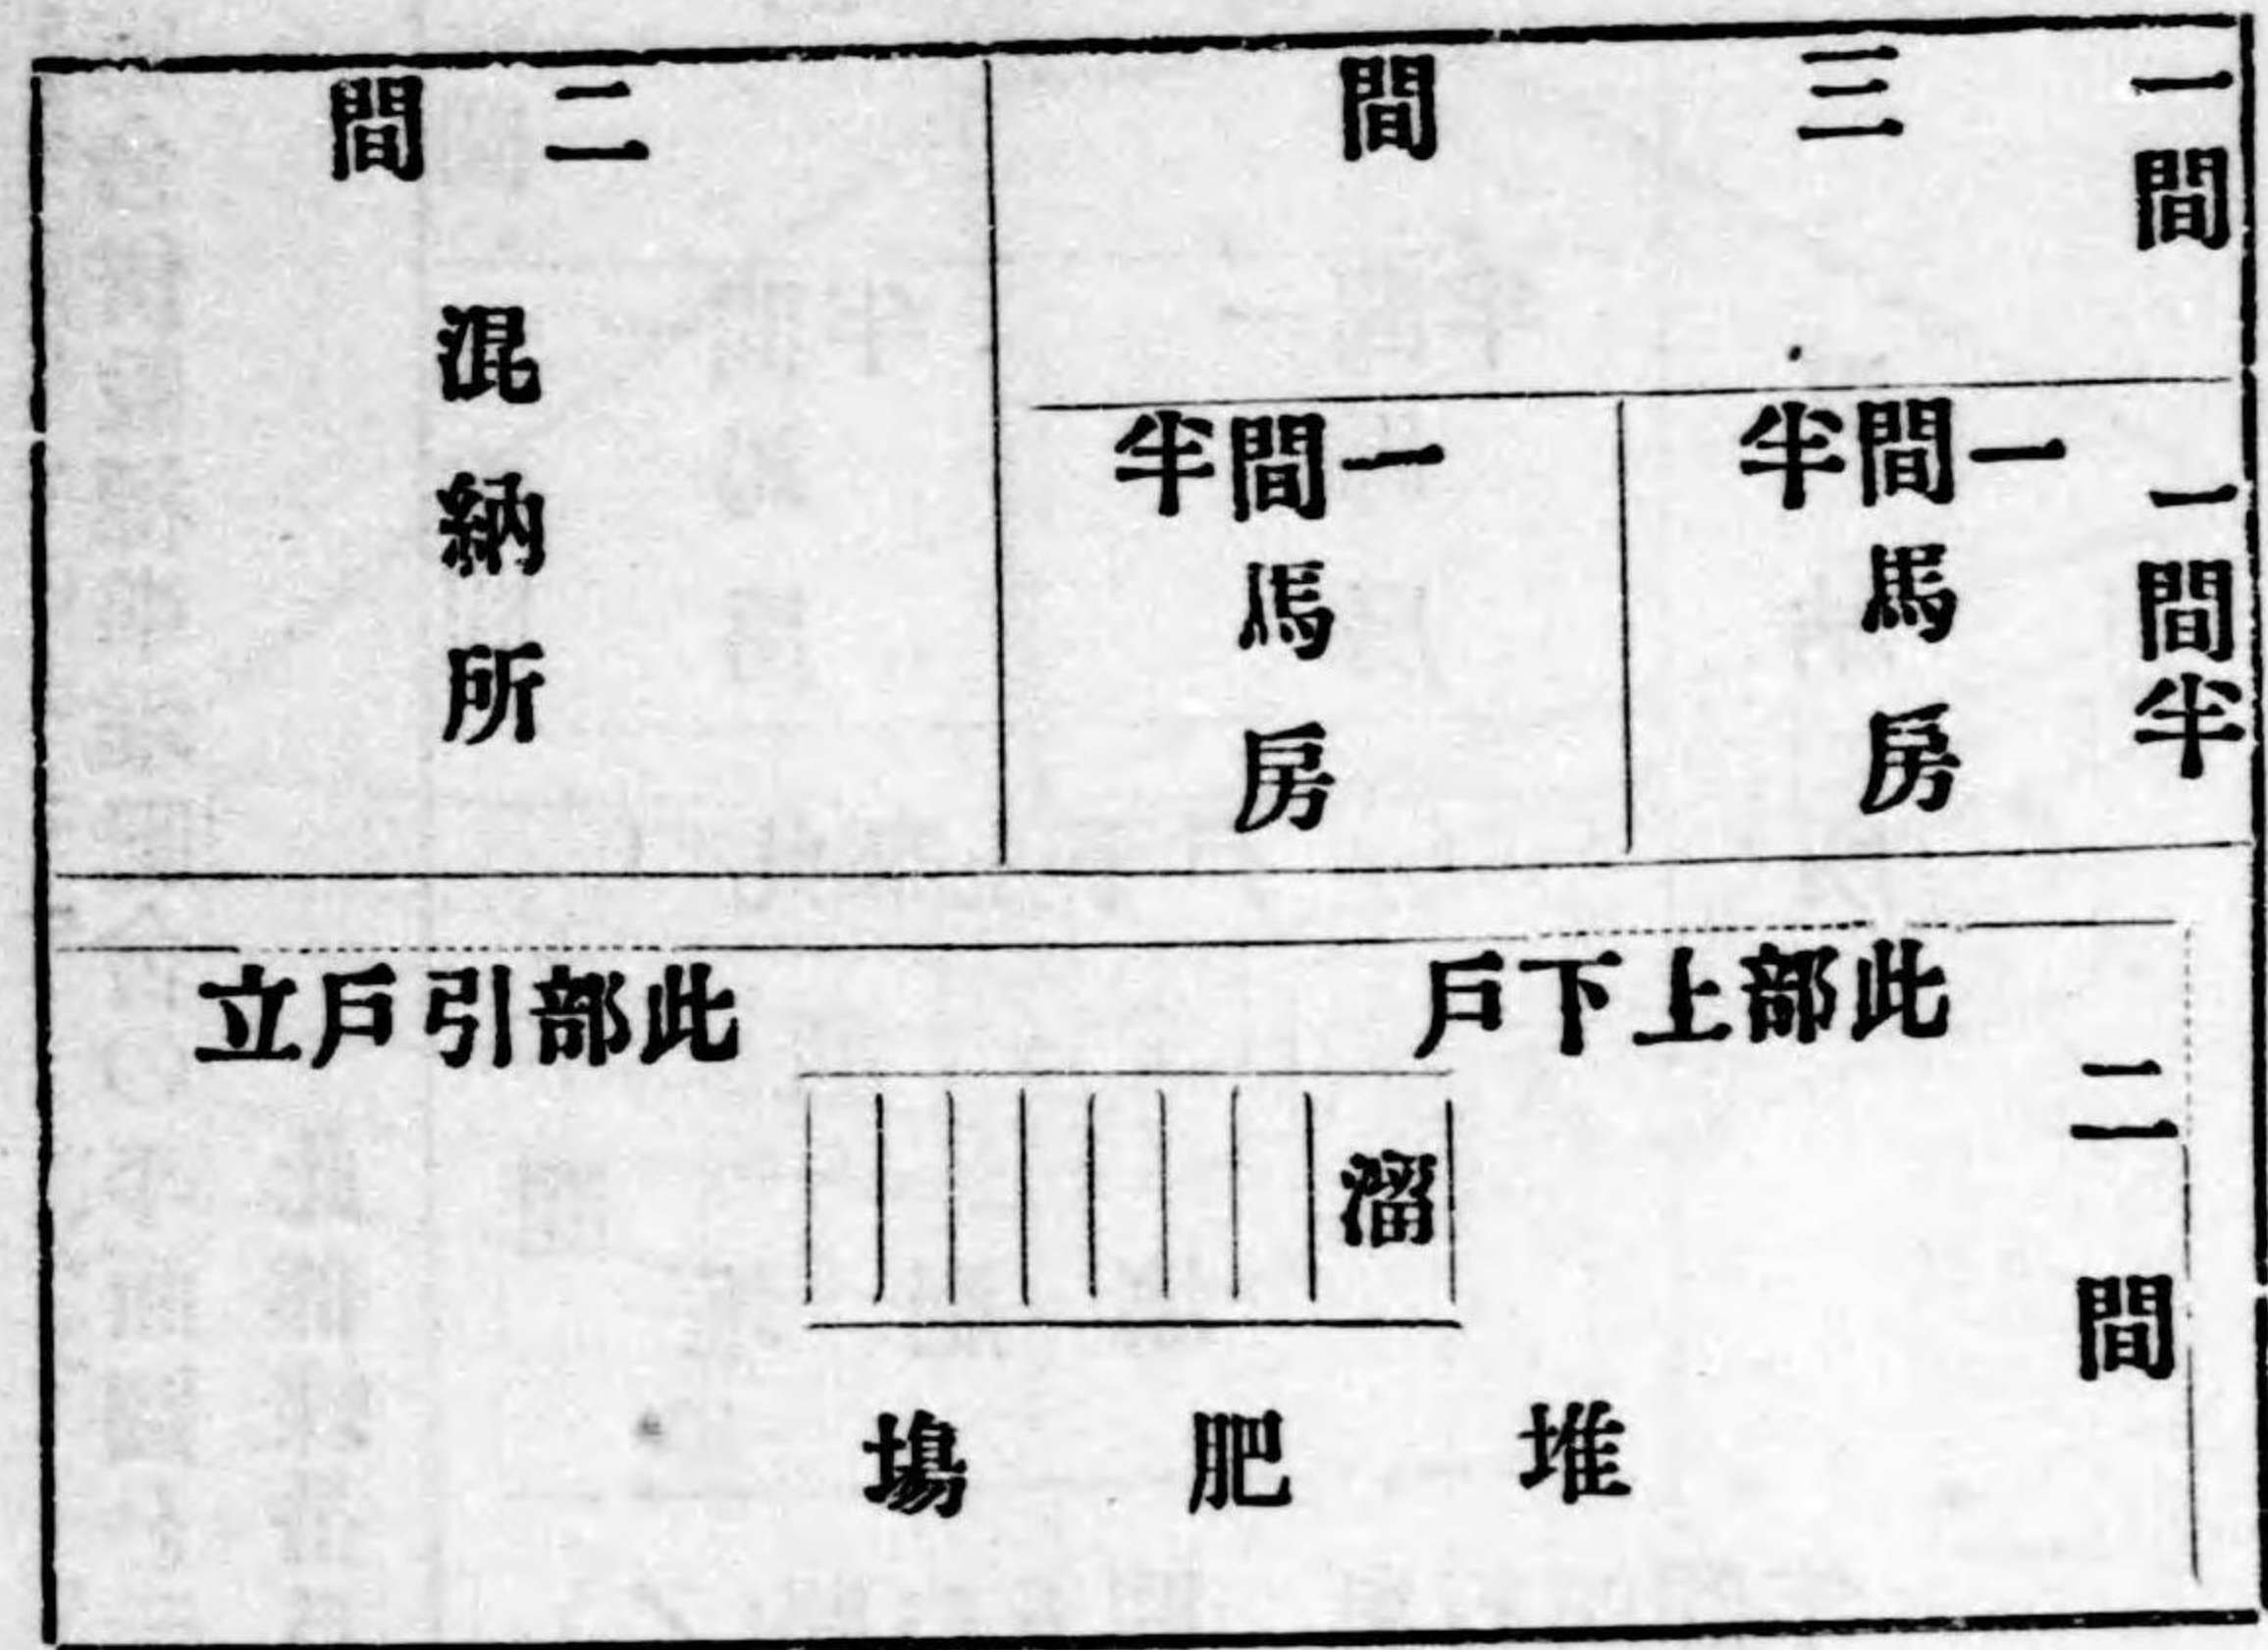 一間
三間
二間
一間半
一間半
馬房
一間半
馬房
混納所
此部上下戶
此部引戶立
二間
溜
堆肥場